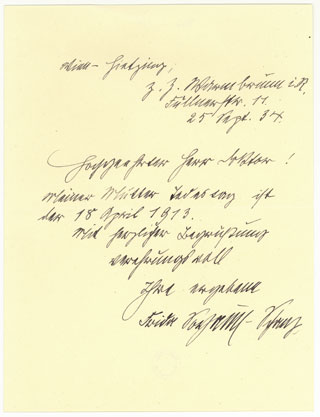 Wien-Hietzing,
z. Z. Warmbrunn i. R.
Füllnerstr. 11
25 Sept. 34.
Hochgeehrter Herr Doktor!
Meiner Mutter Todestag ist
der 18 April 1913.
Mit herzlicher Begrüßung
verehrungsvoll
Ihre ergebene
Frida